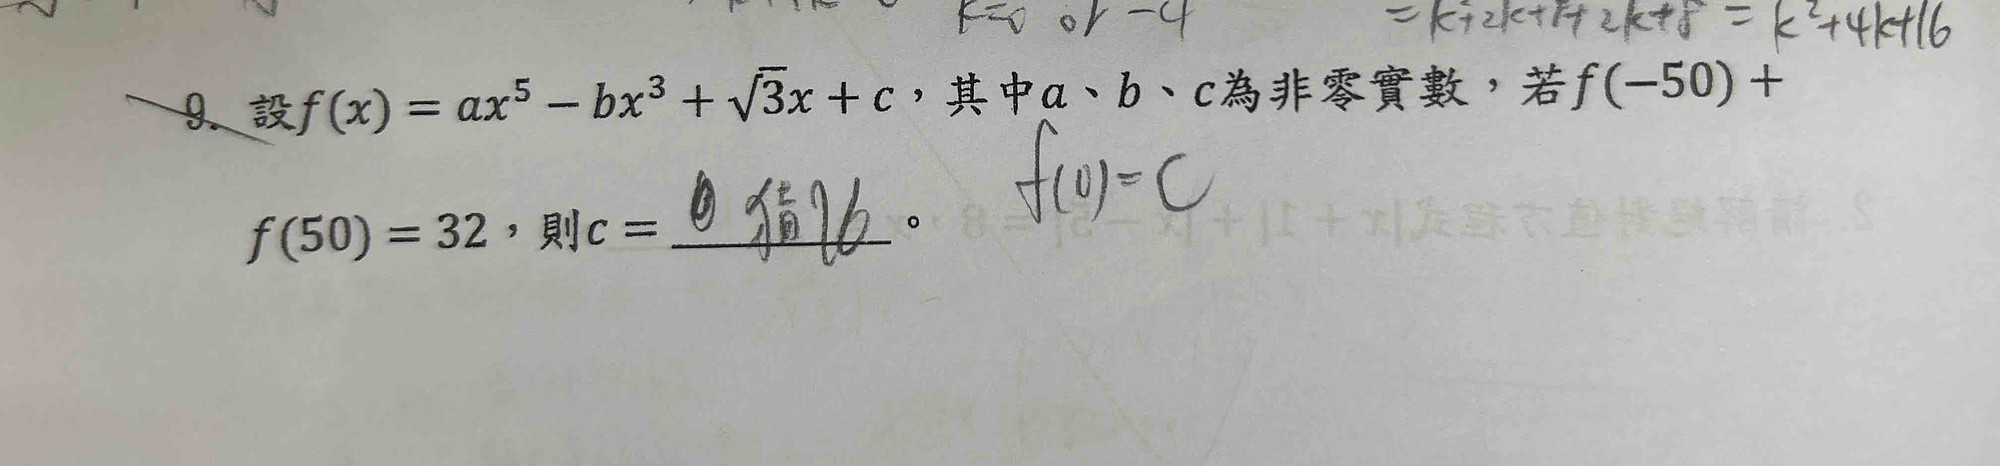 k=0 or -4
= k²+2k+8+2k+8 = k²+4k+16
9. 設f(x) = ax⁵ − bx³ + √3x + c,其中a、b、c為非零實數,若f(−50) +
f(0)=C
f(50) = 32,則c = 0 猜16。